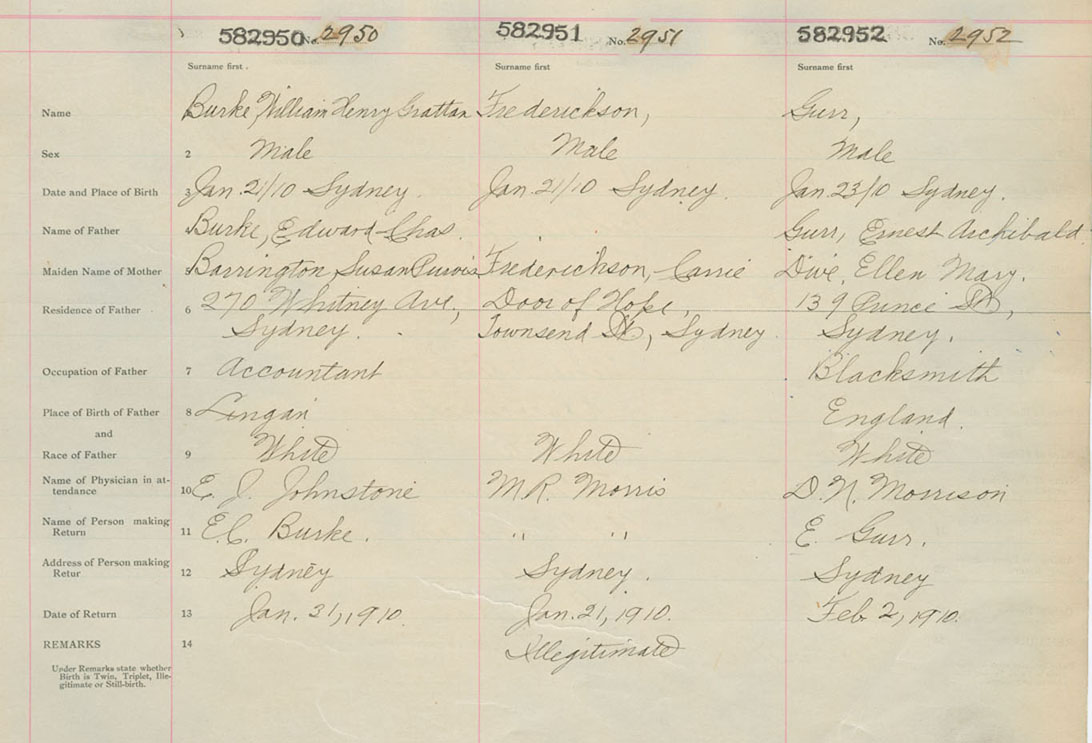 582950 No. 2950 582951 No. 2951 582952 No. 2952
Surname first . Surname first Surname first
Name Burke, William Henry Grattan Frederickson, Gurr,
Sex 2 Male Male Male
Date and Place of Birth 3 Jan. 21/10 Sydney. Jan. 21/10 Sydney. Jan. 23/10 Sydney.
Name of Father Burke, Edward Chas. Gurr, Ernest Archibald
Maiden Name of Mother Barrington, Susan Purvis Frederickson, Carrie Dive, Ellen Mary.
Residence of Father 6 270 Whitney Ave., Door of Hope, 139 Prince St,
Sydney. Townsend St, Sydney Sydney.
Occupation of Father 7 Accountant Blacksmith
Place of Birth of Father 8 Lingan England.
and
Race of Father 9 White White White
Name of Physician in at-
tendance 10 E. J. Johnstone M. R. Morris D. N. Morrison
Name of Person making
Return 11 E. C. Burke. " " E. Gurr.
Address of Person making
Retur 12 Sydney Sydney. Sydney
Date of Return 13 Jan. 31, 1910. Jan. 21, 1910. Feb 2, 1910.
REMARKS 14 Illegitimate
Under Remarks state whether
Birth is Twin, Triplet, Ille-
gitimate or Still-birth.